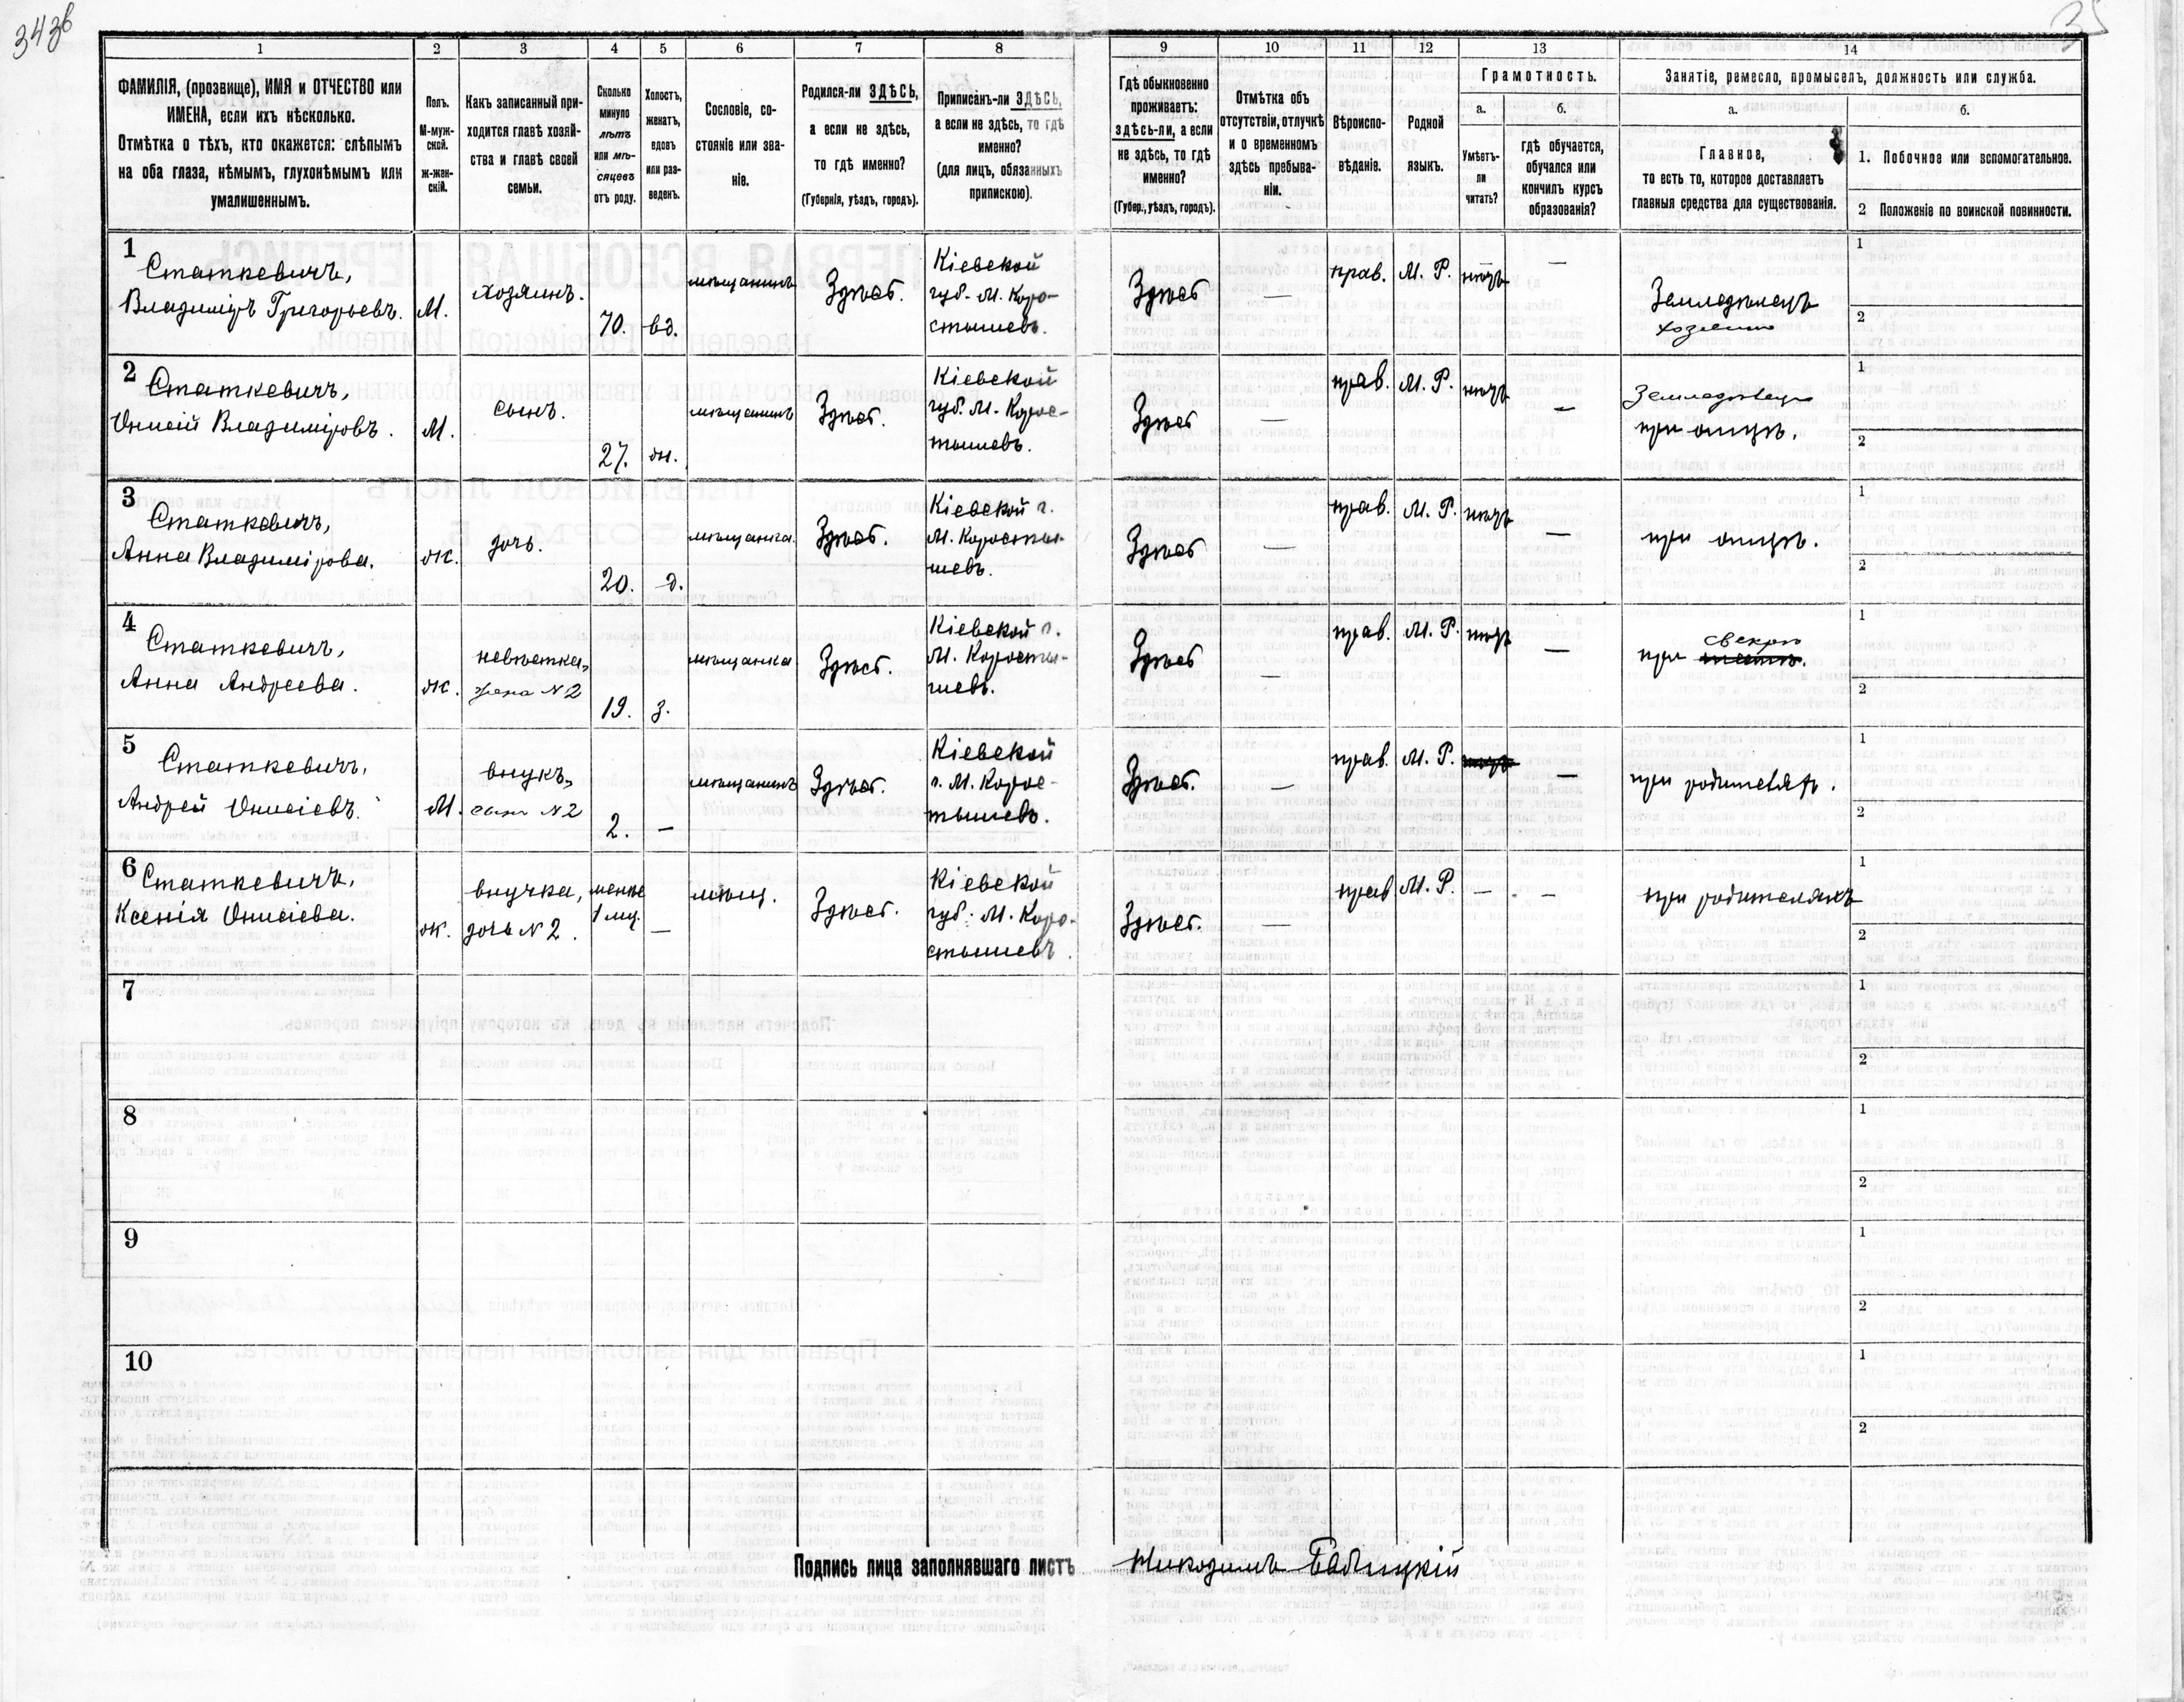 343б
35
1 2 3 4 5 6 7 8 9 10 11 12 13 14
ФАМИЛІЯ, (прозвище), ИМЯ и ОТЧЕСТВО или
ИМЕНА, если ихъ нѣсколько.
Отмѣтка о тѣхъ, кто окажется: слѣпымъ
на оба глаза, нѣмымъ, глухонѣмымъ или
умалишеннымъ.
Полъ.
М-муж-
ской.
ж-жен-
скій.
Какъ записанный при-
ходится главѣ хозяй-
ства и главѣ своей
семьи.
Сколько
минуло
лѣтъ
или мѣ-
сяцевъ
отъ роду.
Холостъ,
женатъ,
вдовъ
или раз-
веденъ.
Сословіе, со-
стояніе или зва-
ніе.
Родился-ли ЗДѢСЬ,
а если не здѣсь,
то гдѣ именно?
(Губернія, уѣздъ, городъ).
Приписанъ-ли ЗДѢСЬ,
а если не здѣсь, то гдѣ
именно?
(для лицъ, обязанныхъ
припискою).
Гдѣ обыкновенно
проживаетъ:
здѣсь-ли, а если
не здѣсь, то гдѣ
именно?
(Губер., уѣздъ, городъ).
Отмѣтка объ
отсутствіи, отлучкѣ
и о временномъ
здѣсь пребыва-
ніи.
Вѣроиспо-
вѣданіе.
Родной
языкъ.
Грамотность.
а.
Умѣетъ-
ли
читать?
б.
гдѣ обучается,
обучался или
кончилъ курсъ
образованія?
Занятіе, ремесло, промыселъ, должность или служба.
а.
Главное,
то есть то, которое доставляетъ
главныя средства для существованія.
б.
1. Побочное или вспомогательное.
2 Положеніе по воинской повинности.
1
Статкевичъ,
Владиміръ Григорьевъ.
М.
хозяинъ.
70.
вд.
мѣщанинъ
Здѣсь.
Кіевской
губ. М. Коро-
стышевъ.
Здѣсь
—
прав.
М. Р.
нѣтъ
—
Земледѣлецъ
хозяинъ
1
2
2
Статкевичъ,
Онисій Владиміровъ.
М.
сынъ.
27.
ж.
мѣщанинъ
Здѣсь.
Кіевской
губ. М. Корос-
тышевъ.
Здѣсь
—
прав.
М. Р.
нѣтъ
—
Земледѣлецъ
при отцѣ.
1
2
3
Статкевичъ,
Анна Владимірова.
ж.
дочь.
20.
д.
мѣщанка.
Здѣсь.
Кіевской г.
М. Коросты-
шевъ.
Здѣсь
—
прав.
М. Р.
нѣтъ
—
при отцѣ.
1
2
4
Статкевичъ,
Анна Андреева.
ж.
невѣстка,
жена N2
19.
з.
мѣщанка
Здѣсь.
Кіевской г.
М. Коросты-
шевъ.
Здѣсь
—
прав.
М. Р.
нѣтъ
—
свекрѣ
при
1
2
5
Статкевичъ,
Андрей Онисіевъ.
М.
внукъ,
сынъ N2
2.
—
мѣщанинъ
Здѣсь.
Кіевской
г. М. Корос-
тышевъ.
Здѣсь.
—
прав.
М. Р.
нѣтъ
—
при родителях.
1
2
6
Статкевичъ,
Ксенія Онисіева.
ж.
внучка,
дочь N2.
менѣе
1 мц.
—
мѣщ.
Здѣсь.
Кіевской
губ. М. Коро-
стышевъ.
Здѣсь.
—
прав
М. Р.
—
—
при родителяхъ
1
2
7
1
2
8
1
2
9
1
2
10
1
2
Подпись лица заполнявшаго листъ Никодимъ Бабицкій